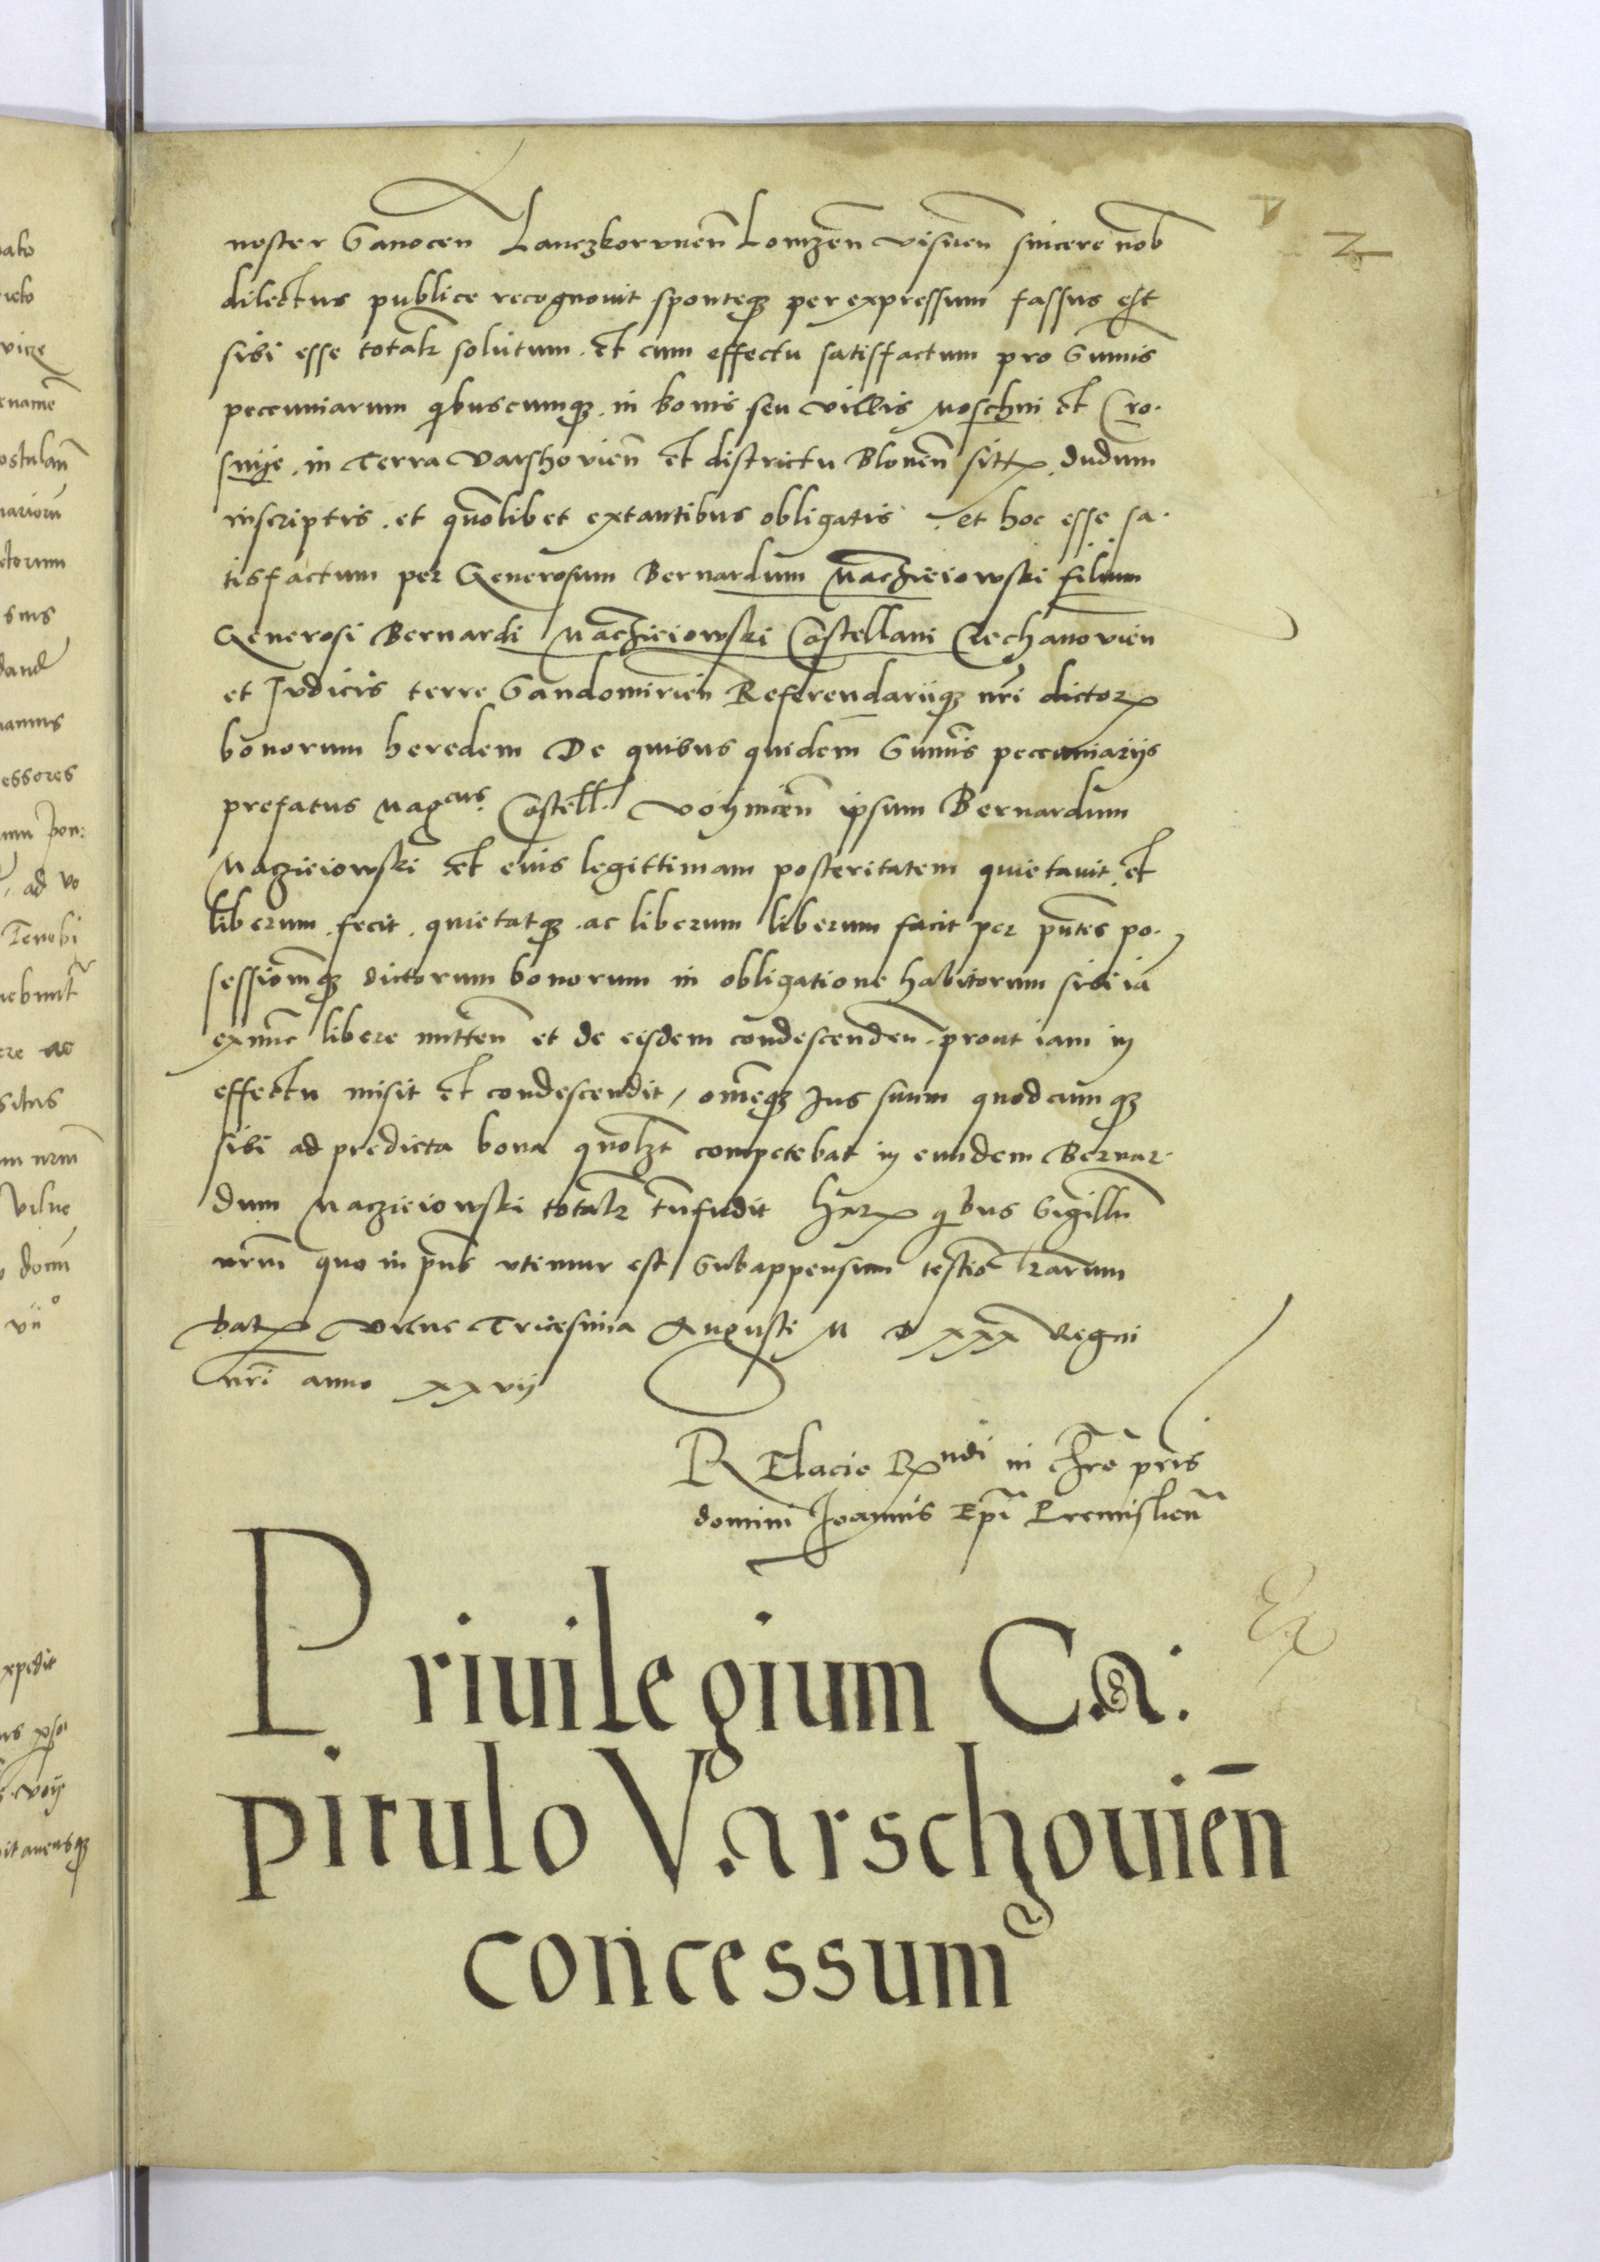 2
noster Sanocen̄ Lanczkorunen̄ Lomzen̄ Visnen̄ sincere nob̄
dilectus publice recognouit sponteqꝫ per expressum fassus est
sibi esse totalr solutum. et cum effectu satisfactum pro Sum̄is
pecuniarum qͥbuscumqꝫ. in bonis seu villis Moschni et Cro.
snije. in Terra Varshouien̄ et districtu Blonen̄ sitꝭ dudum
inscriptis. et quolibet extantibus obligatis. et hoc esse sa.
tisfactum per Generosum Bernardum Macziejowski filium
Generosi Bernardi Macziejowski Castellani Czechanovien̄
et Iudicis terre Sandomirien̄ Referendariiqꝫ nr̄i dictoꝝ
bonorum heredem De quibus quidem Sum̄is pecuniariis
prefatus Magcus Castell. Voijnicen̄ ipsum Bernardum
Macziejowski et eius legittimam posteritatem quietauit. et
liberum. fecit. quietatqꝫ. ac liberum liberum facit per pn̄tes po.
sessionem̄qꝫ dictorum bonorum in obligatione habitorum sibi iā
exnunc libere mitten̄ et de eisdem condescenden̄. prout iam in
effectu misit et condescendit, om̄eqꝫ Ius suum quodcumqꝫ
sibi ad predicta bona quolzt competebat in eundem Bernar.
dum Macziejowski totalr tn̄sfudit Harꝝ qͥbus Sigillū
nrm̄ quo in pn̄s vtimur est Subappensum testio lr̄arum
Datꝭ Vilne Tricesima Augusti M D xxx Regni
nr̄i anno xxvij
RElacio Rndi in chro pris
domini Joannis Epi Premislien̄
Ex
Priuilegium Ca:
pitulo Varschouien̄
concessum